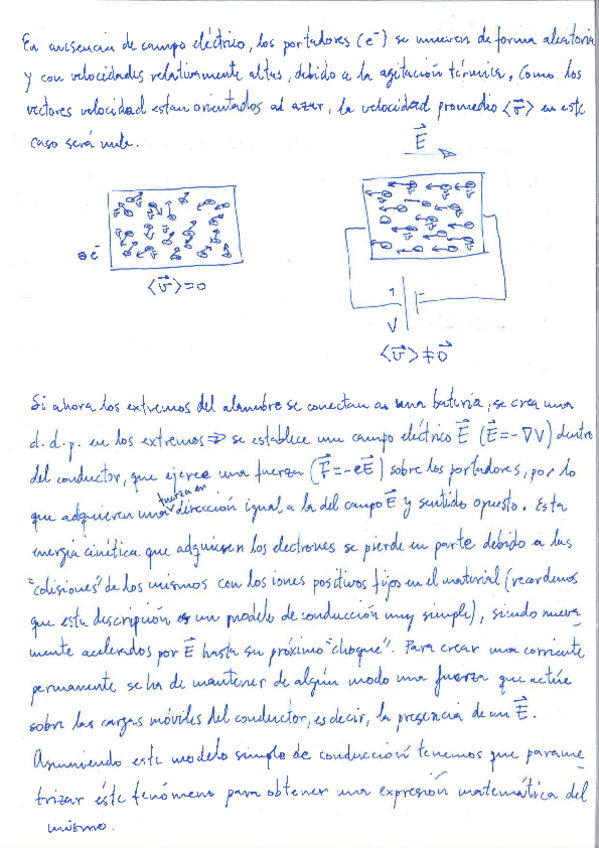 En ausencia de campo eléctrico, los portadores (e⁻) se mueven de forma aleatoria
y con velocidades relativamente altas, debido a la agitación térmica. Como los
vectores velocidad estan orientados al azar, la velocidad promedio ⟨v⃗⟩ en este
caso será nula.
E⃗
e⁻
⟨v⃗⟩=0
V
⟨v⃗⟩≠0⃗
Si ahora los extremos del alambre se conectan a una batería, se crea una
d.d.p. en los extremos ⇒ se establece un campo eléctrico E⃗ (E⃗=-∇V) dentro
del conductor, que ejerce una fuerza (F⃗=-eE⃗) sobre los portadores, por lo
fuerza en
que adquieren una dirección igual a la del campo E⃗ y sentido opuesto. Esta
energía cinética que adquieren los electrones se pierde en parte debido a las
"colisiones" de los mismos con los iones positivos fijos en el material (recordemos
que esta descripción es un modelo de conducción muy simple), siendo nueva-
mente acelerados por E⃗ hasta su próximo "choque". Para crear una corriente
permanente se ha de mantener de algún modo una fuerza que actúe
sobre las cargas móviles del conductor, es decir, la presencia de un E⃗.
Asumiendo este modelo simple de conducción tenemos que parame-
trizar éste fenómeno para obtener una expresión matemática del
mismo.